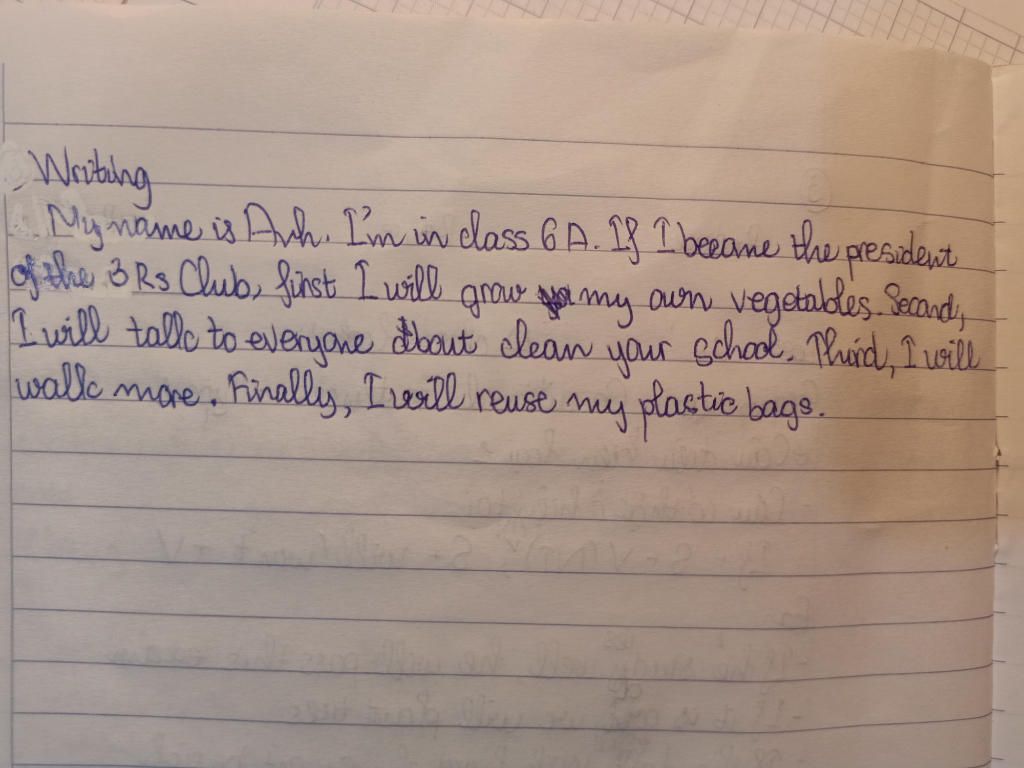 Writing
My name is Anh. I'm in class 6A. If I became the president
of the 3Rs Club, first I will grow my own vegetables. Second,
I will talk to everyone about clean your school. Third, I will
walk more. Finally, I will reuse my plastic bags.